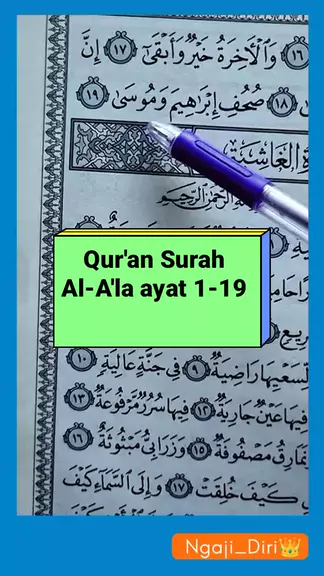 ١٦ وَٱلْأَخِرَةُ خَيْرٌ وَأَبْقَىٰٓ ١٧ إِنَّ
١٨ صُحُفِ إِبْرَٰهِيمَ وَمُوسَىٰ ١٩
ةُ الْغَاشِيَةِ
الرَّحْمَٰنِ الرَّحِيمِ
Qur'an Surah
Al-A'la ayat 1-19
لِّسَعْيِهَا رَاضِيَةٌ ٩ فِي جَنَّةٍ عَالِيَةٍ ١٠
فِيهَا عَيْنٌ جَارِيَةٌ ١٢ فِيهَا سُرُرٌ مَّرْفُوعَةٌ ١٣
نَمَارِقُ مَصْفُوفَةٌ ١٥ وَزَرَابِيُّ مَبْثُوثَةٌ ١٦
كَيْفَ خُلِقَتْ ١٧ وَإِلَى السَّمَآءِ كَيْفَ
Ngaji_Diri👑